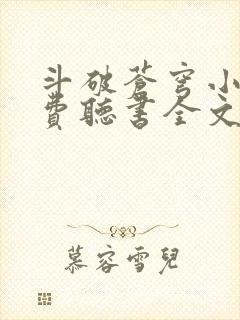 斗破蒼穹小
費聽書全文
慕容雪兒